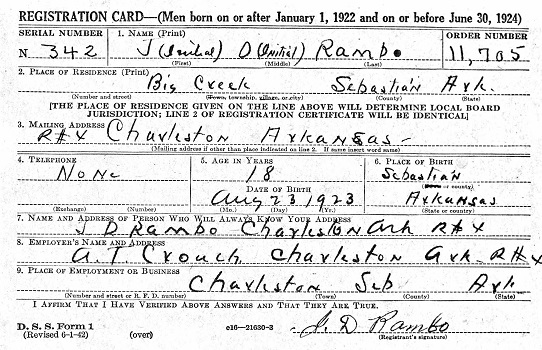 REGISTRATION CARD—(Men born on or after January 1, 1922 and on or before June 30, 1924)
SERIAL NUMBER 1. NAME (Print) ORDER NUMBER
N 342 J (Initial) D (Initial) Rambo 11,705
(First) (Middle) (Last)
2. PLACE OF RESIDENCE (Print)
Big Creek Sebastian Ark.
(Number and street) (Town, township, village, or city) (County) (State)
[THE PLACE OF RESIDENCE GIVEN ON THE LINE ABOVE WILL DETERMINE LOCAL BOARD
JURISDICTION; LINE 2 OF REGISTRATION CERTIFICATE WILL BE IDENTICAL]
3. MAILING ADDRESS
Charleston Arkansas-
(Mailing address if other than place indicated on line 2. If same insert word same)
4. TELEPHONE 5. AGE IN YEARS 6. PLACE OF BIRTH
None 18 Sebastian
(Town or county)
DATE OF BIRTH
Aug 23 1923 Arkansas
(Exchange) (Number) (Mo.) (Day) (Yr.) (State or country)
7. NAME AND ADDRESS OF PERSON WHO WILL ALWAYS KNOW YOUR ADDRESS
J D Rambo Charleston Ark
8. EMPLOYER'S NAME AND ADDRESS
A. T. Crouch Charleston Ark.
9. PLACE OF EMPLOYMENT OR BUSINESS
Charleston Seb Ark
(Number and street or R. F. D. number) (Town) (County) (State)
I AFFIRM THAT I HAVE VERIFIED ABOVE ANSWERS AND THAT THEY ARE TRUE.
D. S. S. Form 1
(Revised 6-1-42) (over) e16—21630-3 J. D Rambo
(Registrant's signature)